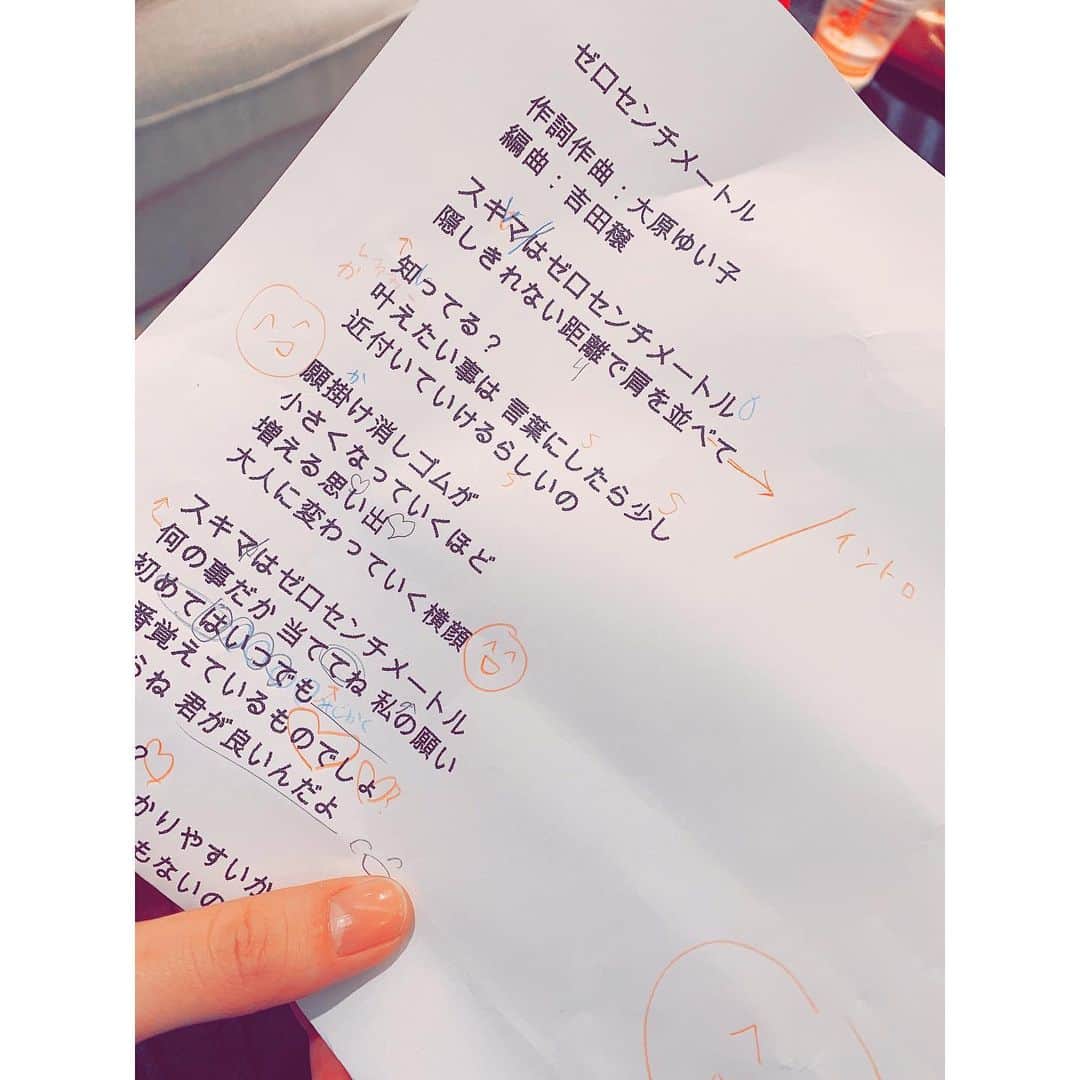 ゼロセンチメートル
作詞作曲：大原ゆい子
編曲：吉田穣
スキマはゼロセンチメートル
隠しきれない距離で肩を並べて
イントロ
知ってる？
叶えたい事は 言葉にしたら少し
近付いていけるらしいの
願掛け消しゴムが
か
小さくなっていくほど
増える思い出
大人に変わっていく横顔
スキマはゼロセンチメートル
何の事だか 当ててね 私の願い
初めてはいつでも
みじかく
番覚えているものでしょ
うね 君が良いんだよ
?
かりやすいか
もないの